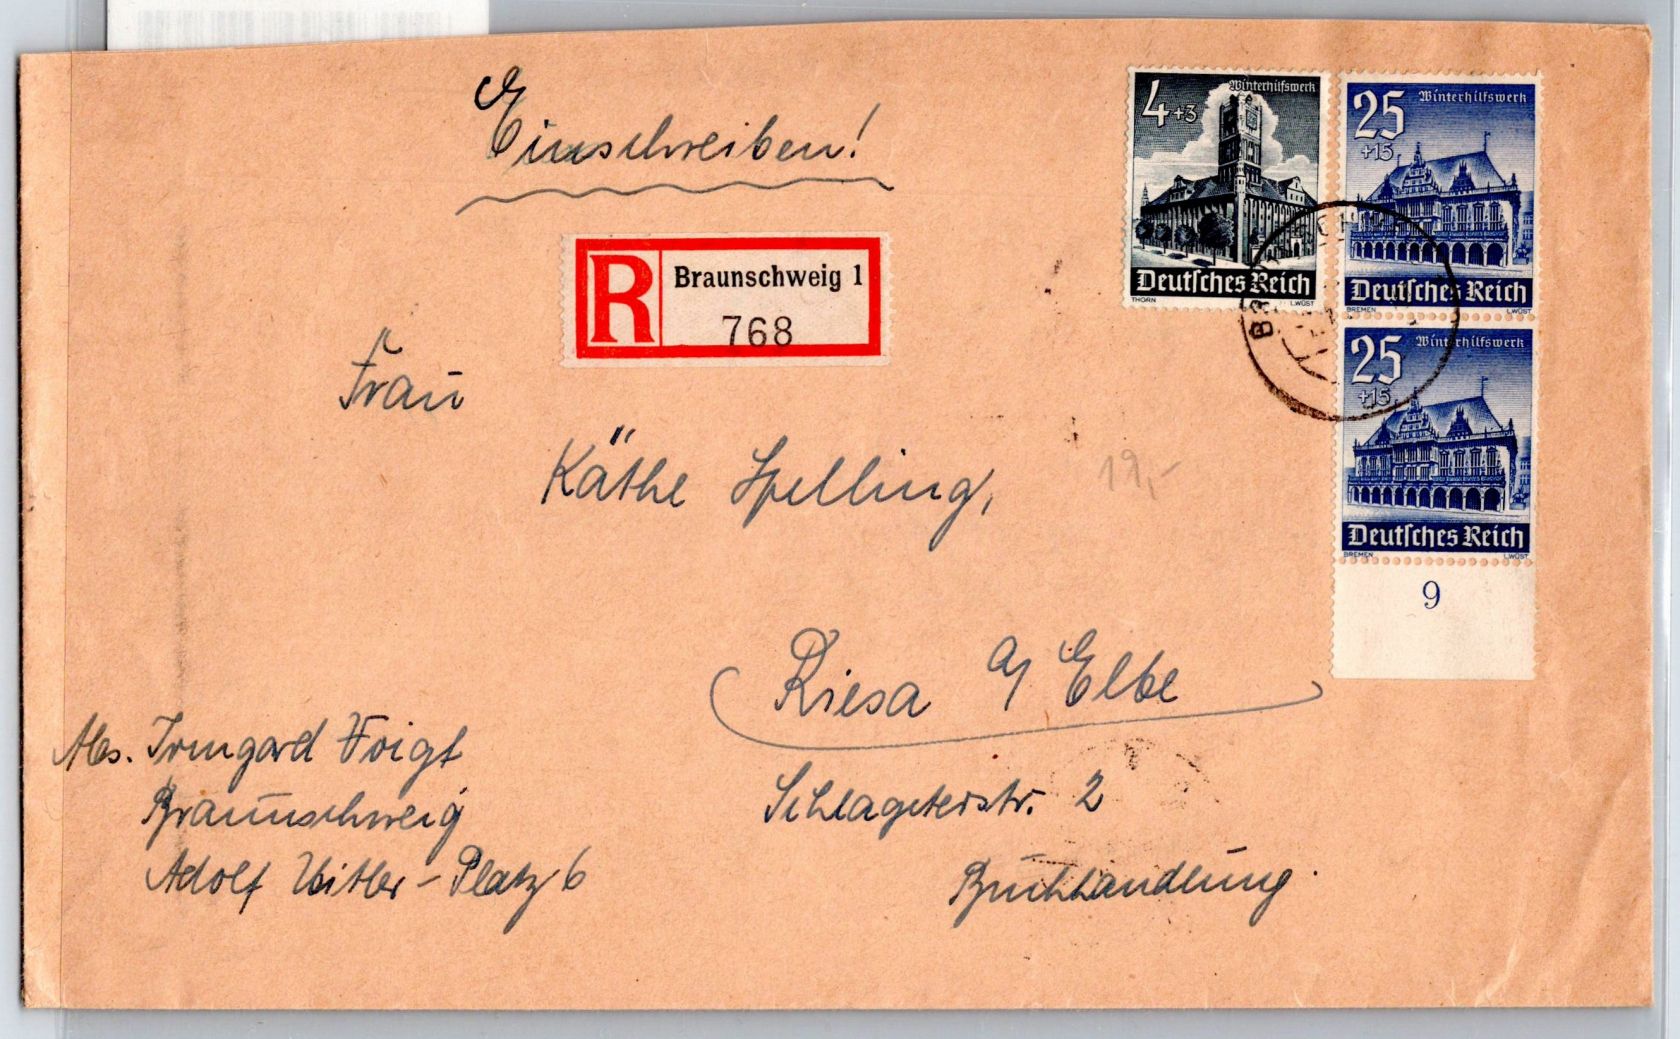 Einschreiben!
4+3
Winterhilfswerk
Deutsches Reich
THORN
L.WÜST
25
+15
Winterhilfswerk
Deutsches Reich
BREMEN
L.WÜST
25
+15
Winterhilfswerk
Deutsches Reich
BREMEN
L.WÜST
9
R
Braunschweig 1
768
Frau
Käthe Spelling,
19,-
Riesa a/ Elbe
Schlageterstr. 2
Buchhandlung.
Abs. Irmgard Voigt
Braunschweig
Adolf Hitler-Platz 6